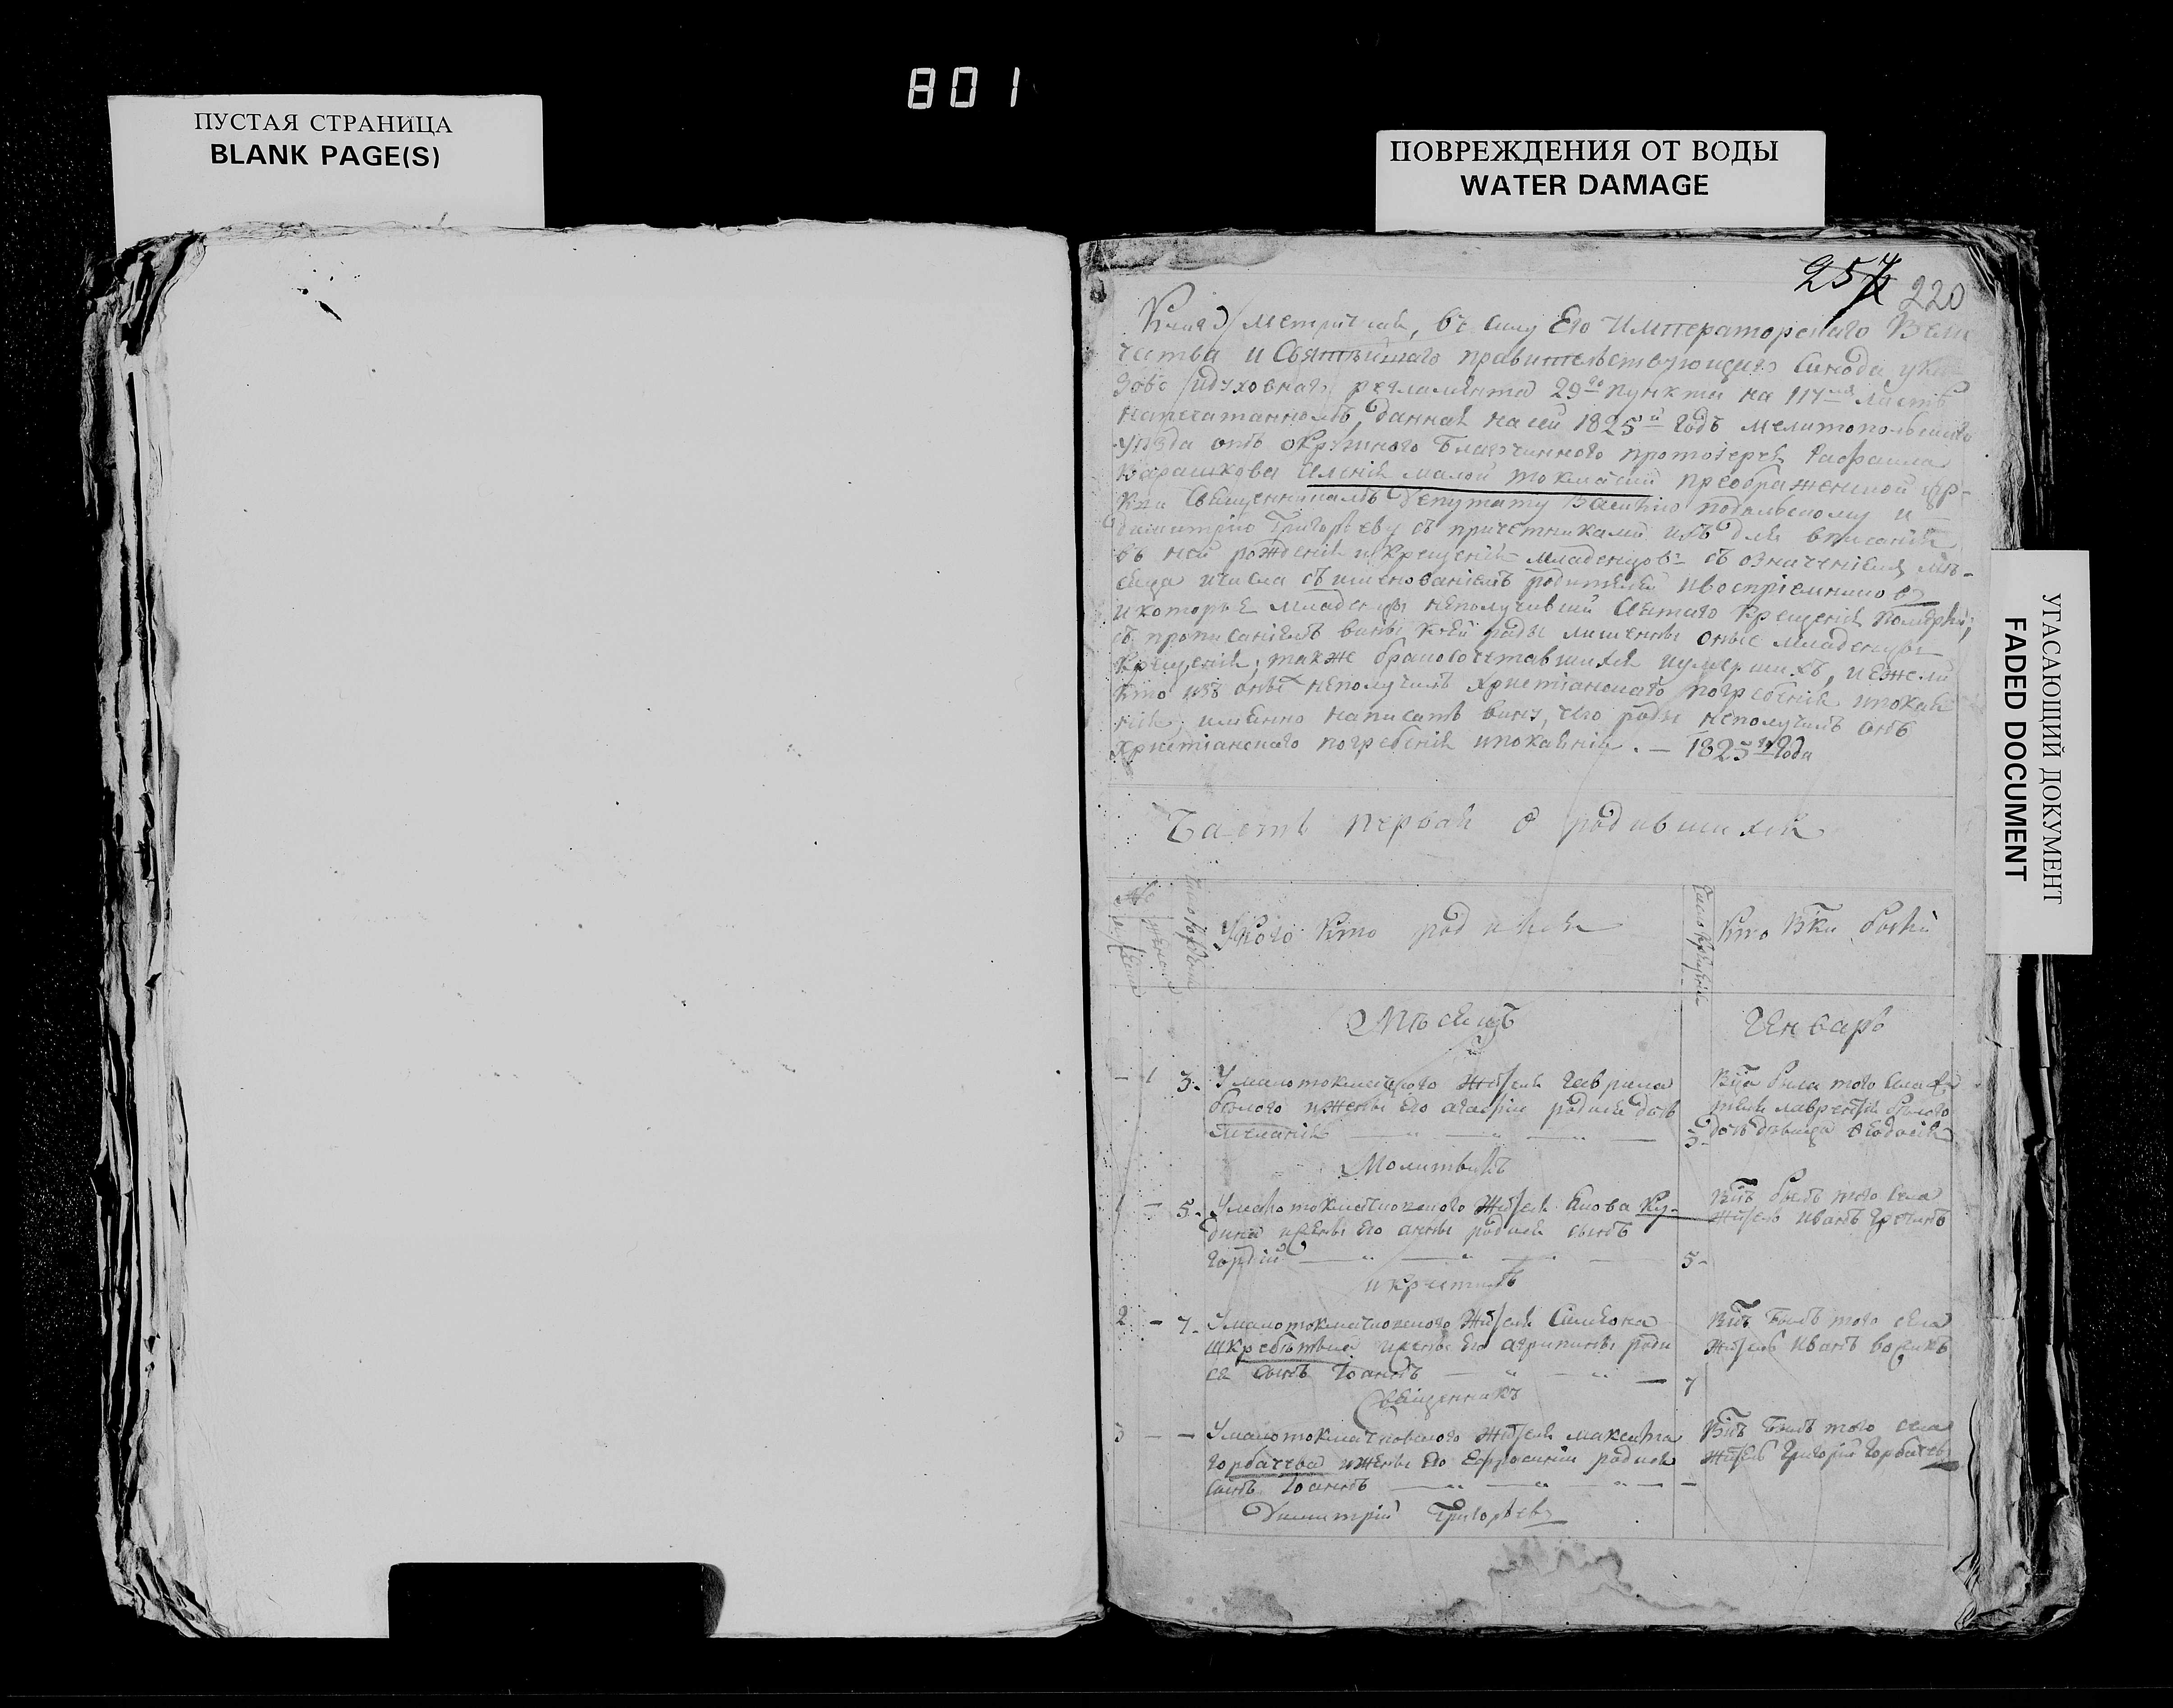 801
ПУСТАЯ СТРАНИЦА
BLANK PAGE(S)
ПОВРЕЖДЕНИЯ ОТ ВОДЫ
WATER DAMAGE
УГАСАЮЩИЙ ДОКУМЕНТ
FADED DOCUMENT
257 220
Книга Метрическая, въ силу Его Императорскаго Вели
чества и Святѣйшаго правительствующаго Синода ука
зовъ и духовнаго регламента 29го пункта на 117мъ листѣ
напечатанномъ, данная на сей 1825й годъ мелитопольскаго
уѣзда отъ окружнаго благочиннаго протоіерея
селенія малой токмачки преображенской цер-
кви Священникамъ депутату Василію подольскому и
димитрію Григорьеву съ причетниками ихъ для вписанія
въ ней рожденія и крещенія младенцовъ съ означеніемъ мѣ-
сяца и числа съ именованіемъ родителей и воспріемниковъ
и которые младенцы неполучивши Святаго Крещенія померли,
съ прописаніемъ вины коей ради лишенны оные младенцы
Крещенія; также бракосочетавшихся и умершихъ, и ежели
кто изъ оныхъ неполучилъ Христіанскаго погребенія и покая
нія, именно написать вину, чего ради неполучилъ онъ
Христіанскаго погребенія и покаянія. — 1825го года
Часть первая о родившихся
Укого Кто родился
Кто Вки были
Мѣсяцъ Генварь
- 1 3. Умалотокмацкого жителя гаврила
бѣлого и жены его агафіи родилась дочь
меланія 3-
была того села
лаврентія бѣлого
дочь дѣвица Ѳеодосія
Молитвилъ
1 - 5. Умалотокмачковского жителя Ку-
дина и жены его анны родился сынъ
гордій 5-
былъ того села
житель иванъ
и крестилъ
2 - 7. Умалотокмачковского жителя Симеона
и жены его агрипины роди
ся сынъ Іоаннъ 7
былъ того села
житель иванъ
Священникъ
3 - - Умалотокмачковского жителя максима
горбачева и жены его Ефросиніи родился
сынъ Іоаннъ -
былъ того села
житель григорій горбачевъ
Димитрій Григорьевъ